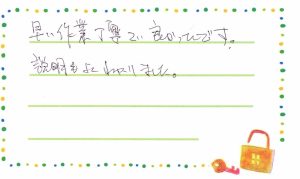 早い作業丁寧で良かったです。
説明もよくわかりました。